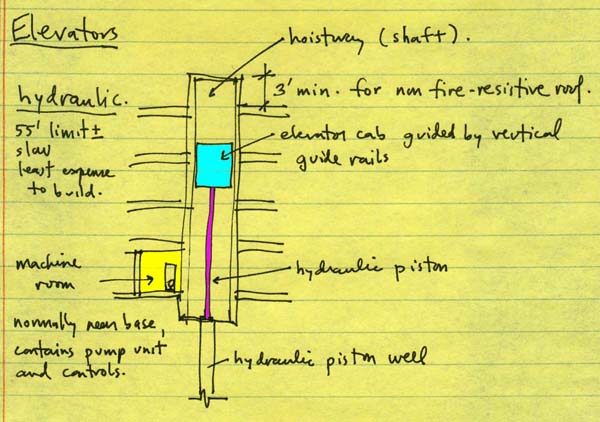 Elevators
hoistway (shaft).
hydraulic.
3' min. for non fire-resistive roof.
55' limit ±
slow
least expense
to build.
elevator cab guided by vertical
guide rails
machine
room
hydraulic piston
normally near base,
contains pump unit
and controls.
hydraulic piston well